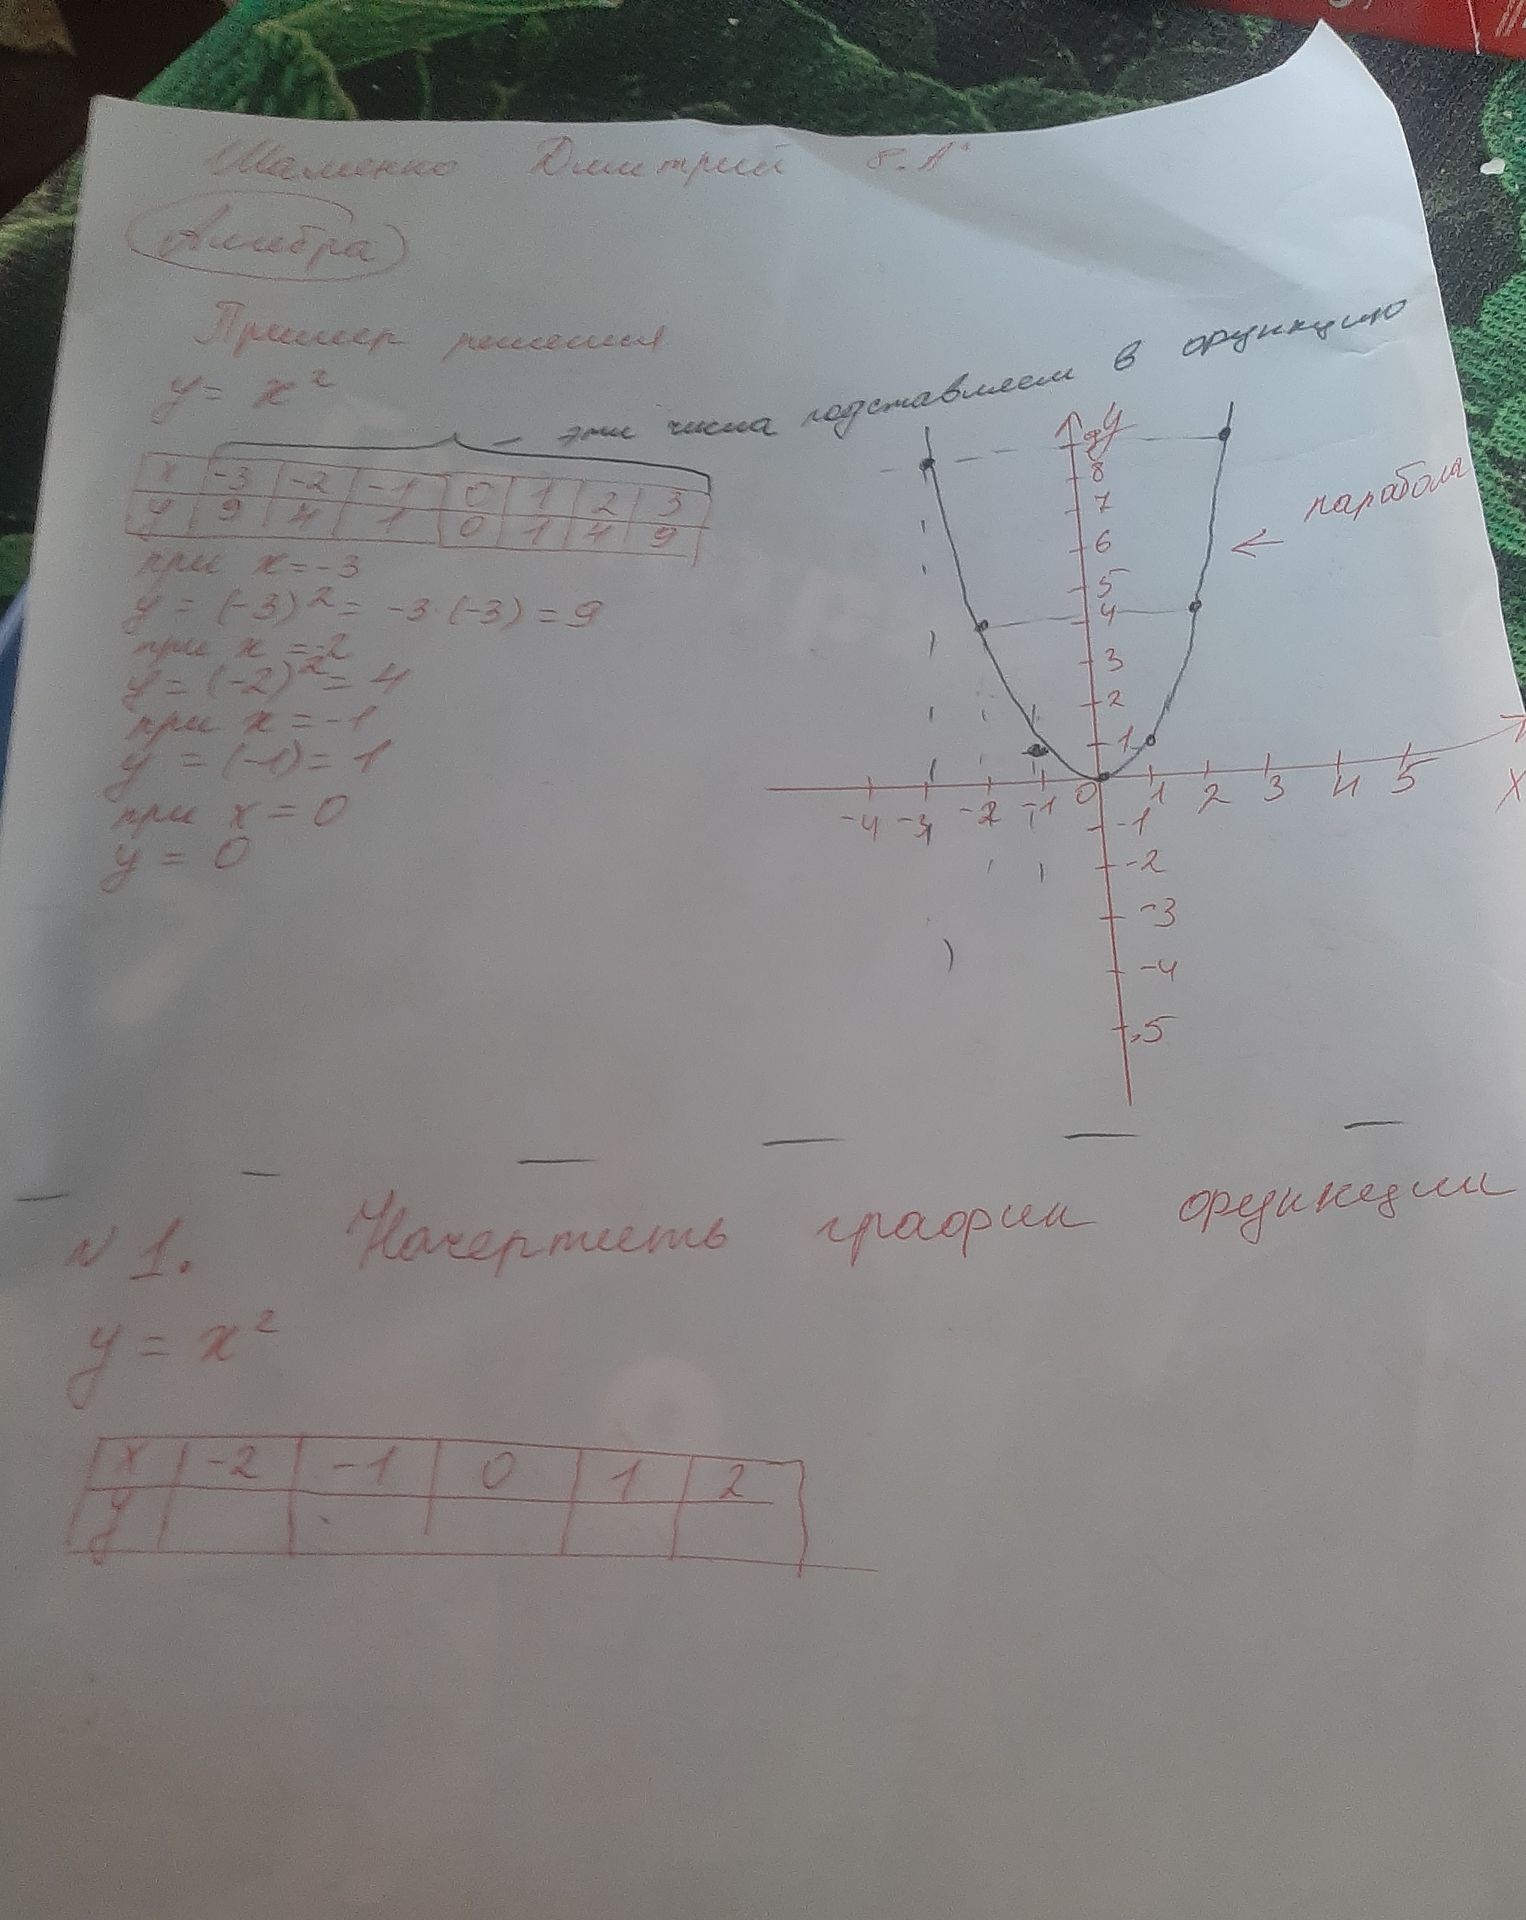 Шаменко Дмитрий 8.А"
Алгебра
Пример решения
y = x²
- эти числа подставляем в функцию
x -3 -2 -1 0 1 2 3
y 9 4 1 0 1 4 9
при x = -3
y = (-3)² = -3·(-3) = 9
при x = -2
y = (-2)² = 4
при x = -1
y = (-1) = 1
при x = 0
y = 0
y
9
8
7
6
5
4
3
2
1
парабола
-4 -3 -2 -1 0 1 2 3 4 5 x
-1
-2
-3
-4
-5
N 1. Начертить график функции
y = x²
x -2 -1 0 1 2
y